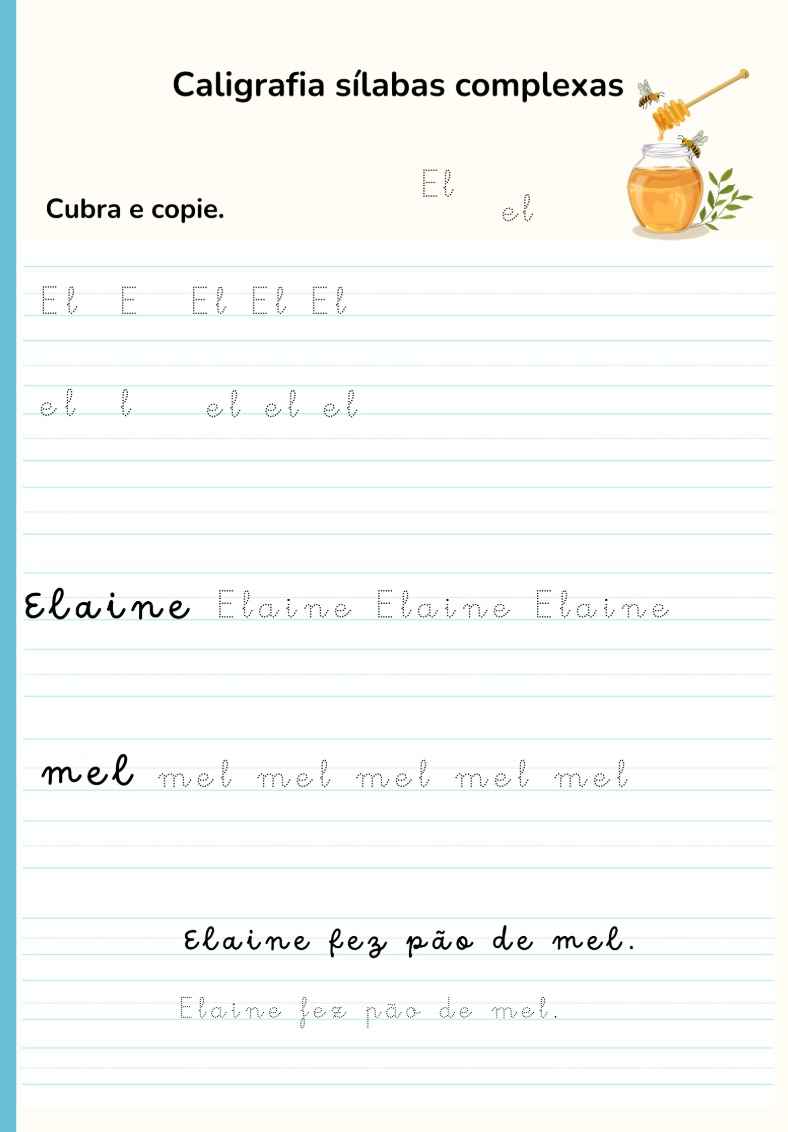 Caligrafia sílabas complexas
El
el
Cubra e copie.
El E El El El
el l el el el
Elaine Elaine Elaine Elaine
mel mel mel mel mel mel
Elaine fez pão de mel.
Elaine fez pão de mel.